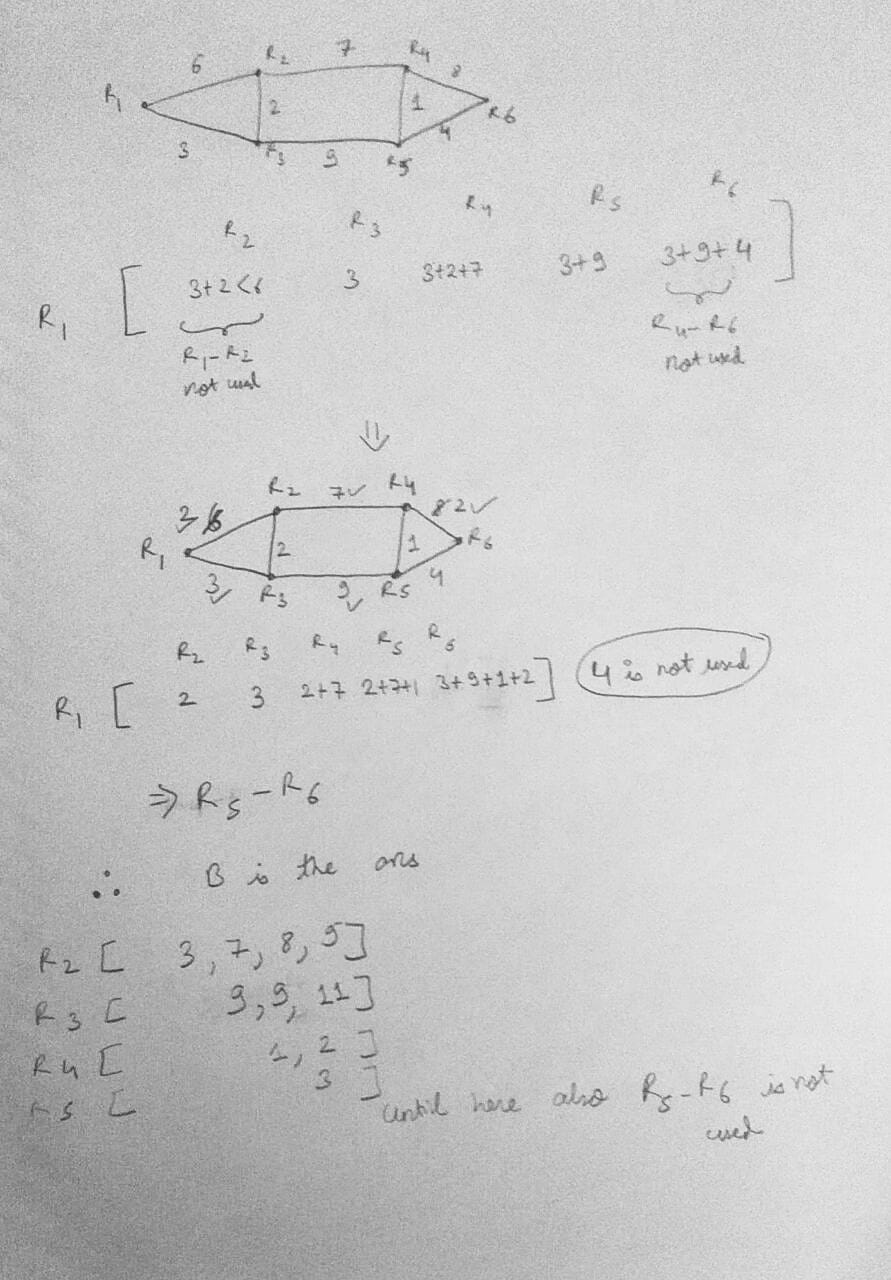 6 R2 7 R4 8
R1 2 1 R6
3 R3 9 R5 4
R2 R3 R4 R5 R6
R1 [ 3+2<6 3 3+2+7 3+9 3+9+4 ]
R1-R2 R4-R6
not used not used
⇓
R2 7✓ R4 8 2✓
3 6
R1 2 1 R6
3✓ R3 9✓ R5 4
R2 R3 R4 R5 R6
R1 [ 2 3 2+7 2+7+1 3+9+1+2 ] 4 is not used
⇒ R5-R6
∴ B is the ans
R2 [ 3, 7, 8, 9 ]
R3 [ 9, 9, 11 ]
R4 [ 1, 2 ]
R5 [ 3 ]
until here also R5-R6 is not
used